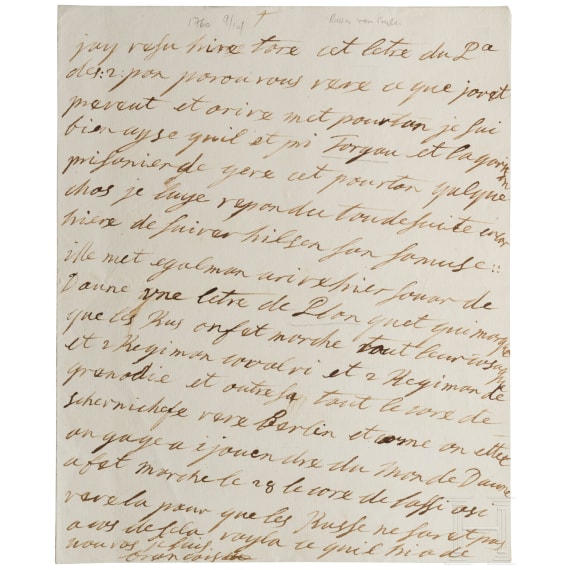 1760 9/10
jay resu hire tore cet letre du P a
des: 2: par vous vere ce que
prevent et arive met pourtan je sui
bien ayse quil et pri Torgau et la
prisonier de gere cet pourtan qualque
chos je luye repondu tou de suite
hiere de suiver hilsen san samuse ::
ille met egalman arive hier souar de
Daune vne letre de Plon quet qui marque
que les Rus on fet marche tout leur cosaq
et 2 Regiman covalri et 2 Regiman de
grenadie et outre sa tout le core de
schernichefe vere Berlin et come on etoit
angage a ijouendre du monde Daune
a fet marche le 28 le core de Lassi
vere la pour que les Russe ne foret pas
de sla voyla ce quil hia de
nouvos je suis
francois